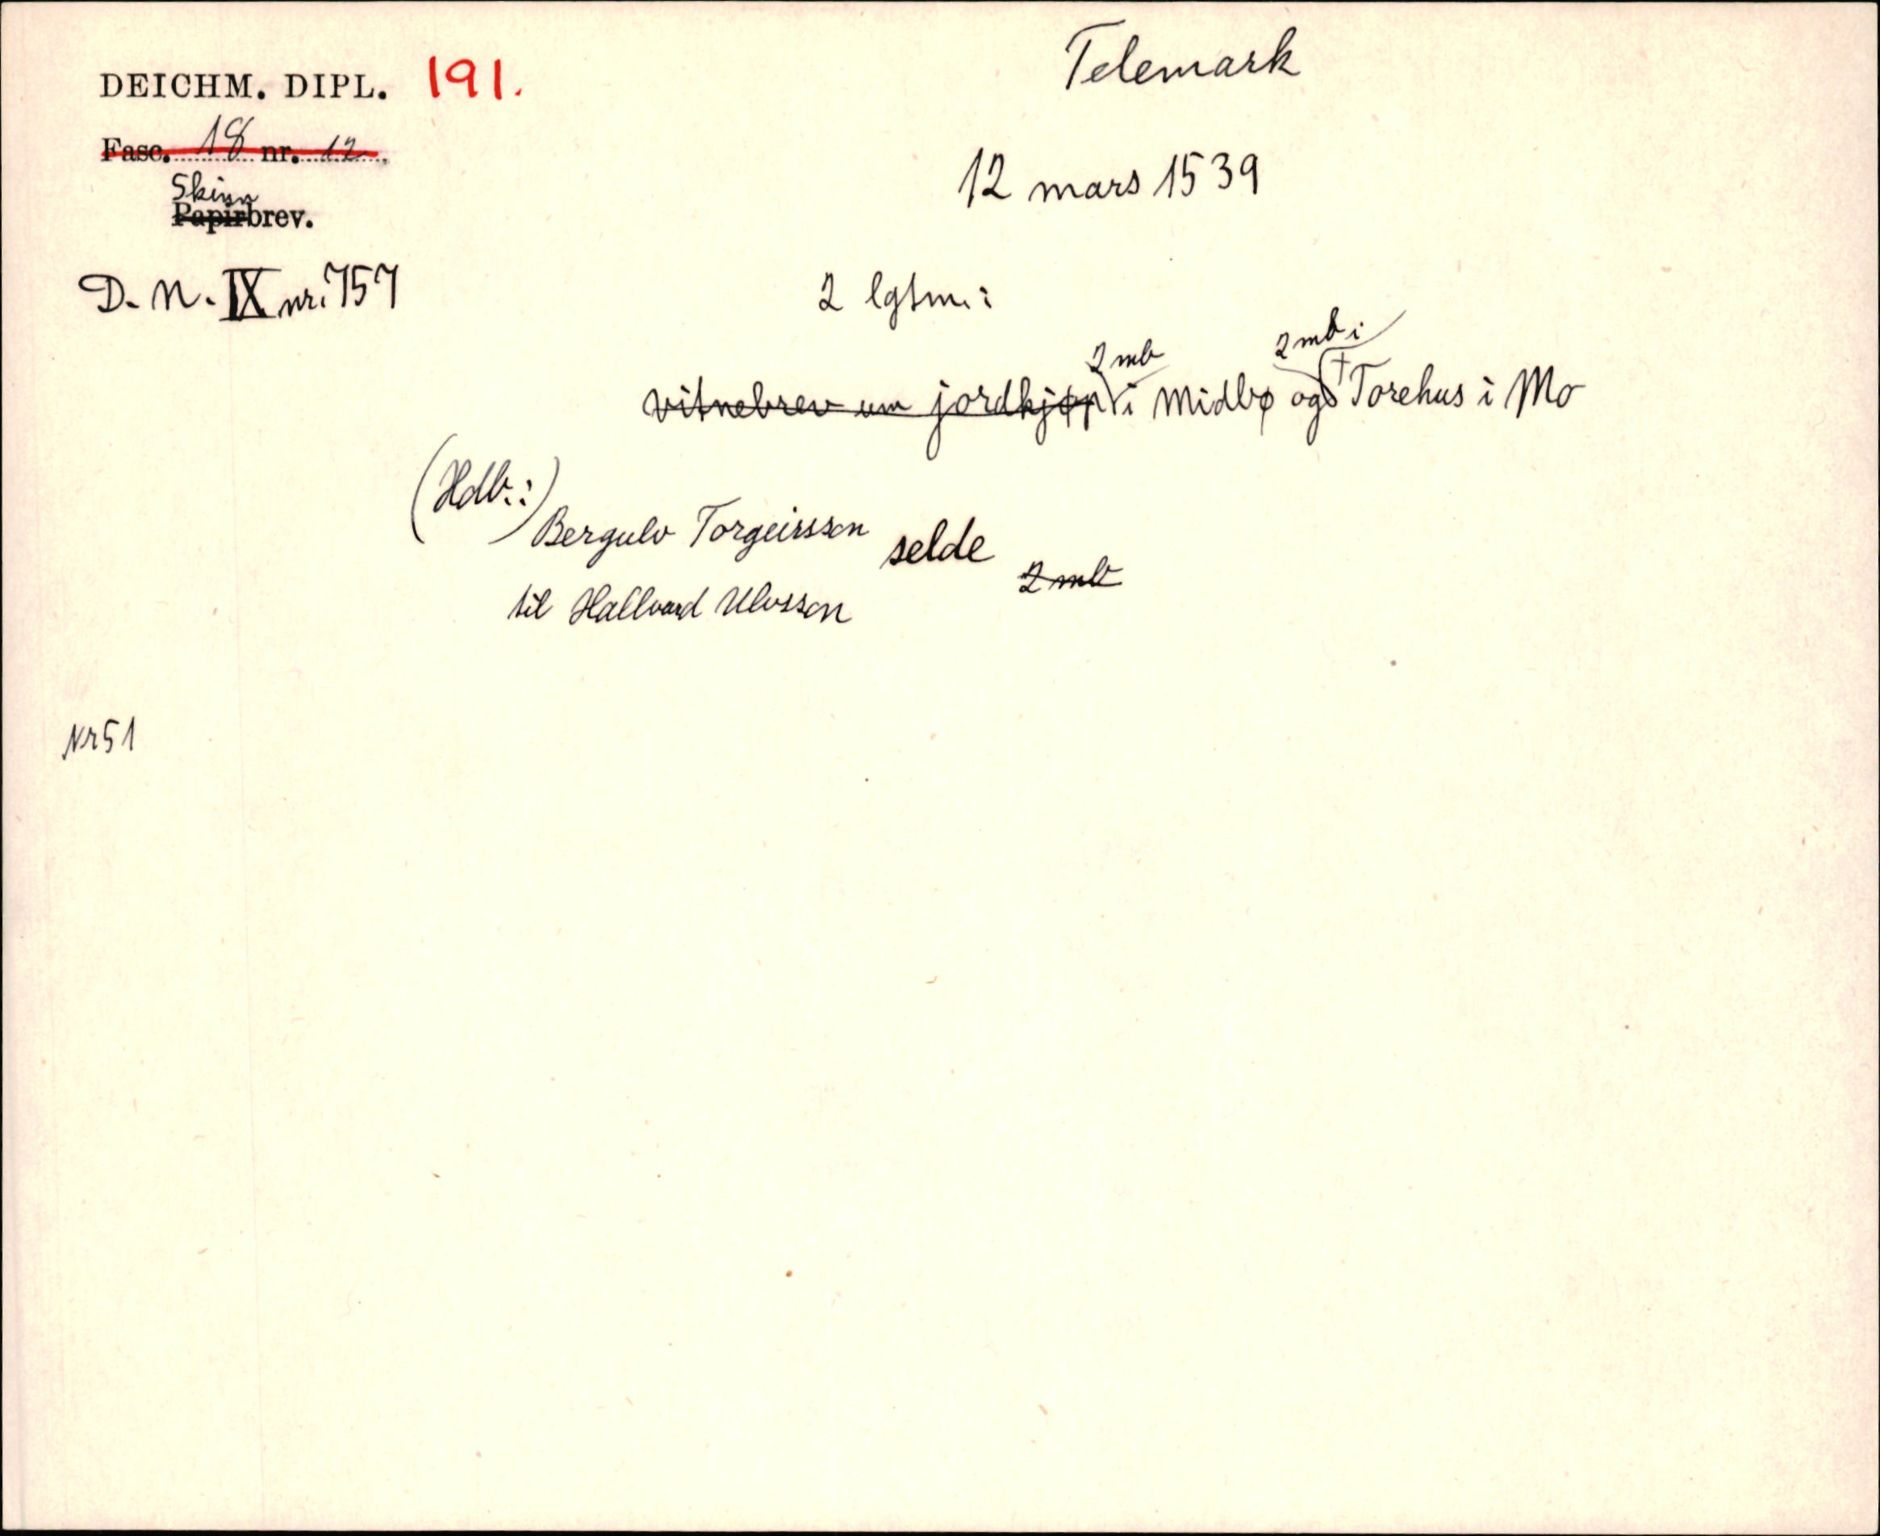 DEICHM. DIPL. 191.
Telemark
Fasc. 18 nr. 12
12 mars 1539
Skinn
Papirbrev.
D. N. IX nr. 757
2 lgtm.:
2 mb 2 mb i
vitnebrev um jordkjøp i Midbø og † Torehus i Mo
(Hdb.:)
Bergulv Torgeirsson selde 2 mb
til Hallvard Ulvsson
Nr 51